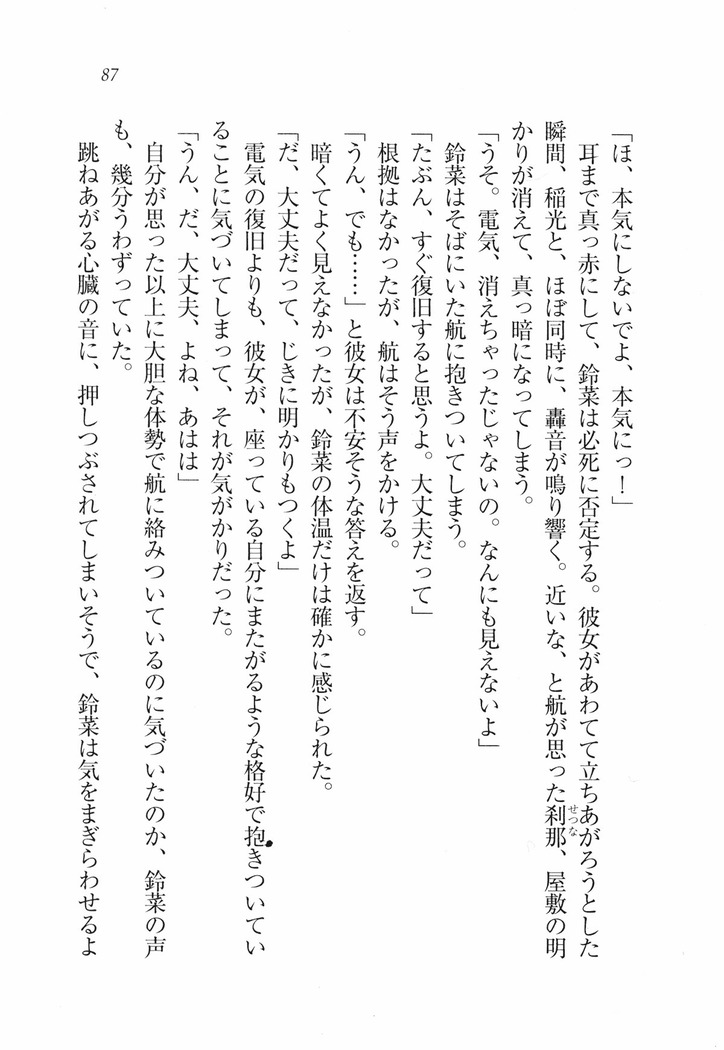 87
「ほ、本気にしないでよ、本気にっ！」
耳まで真っ赤にして、鈴菜は必死に否定する。彼女があわてて立ちあがろうとした
瞬間、稲光と、ほぼ同時に、轟音が鳴り響く。近いな、と航が思った刹那、屋敷の明
せつな
かりが消えて、真っ暗になってしまう。
「うそ。電気、消えちゃったじゃないの。なんにも見えないよ」
鈴菜はそばにいた航に抱きついてしまう。
「たぶん、すぐ復旧すると思うよ。大丈夫だって」
根拠はなかったが、航はそう声をかける。
「うん、でも……」と彼女は不安そうな答えを返す。
暗くてよく見えなかったが、鈴菜の体温だけは確かに感じられた。
「だ、大丈夫だって、じきに明かりもつくよ」
電気の復旧よりも、彼女が、座っている自分にまたがるような格好で抱きついてい
ることに気づいてしまって、それが気がかりだった。
「うん、だ、大丈夫、よね、あはは」
自分が思った以上に大胆な体勢で航に絡みついているのに気づいたのか、鈴菜の声
も、幾分うわずっていた。
跳ねあがる心臓の音に、押しつぶされてしまいそうで、鈴菜は気をまぎらわせるよ